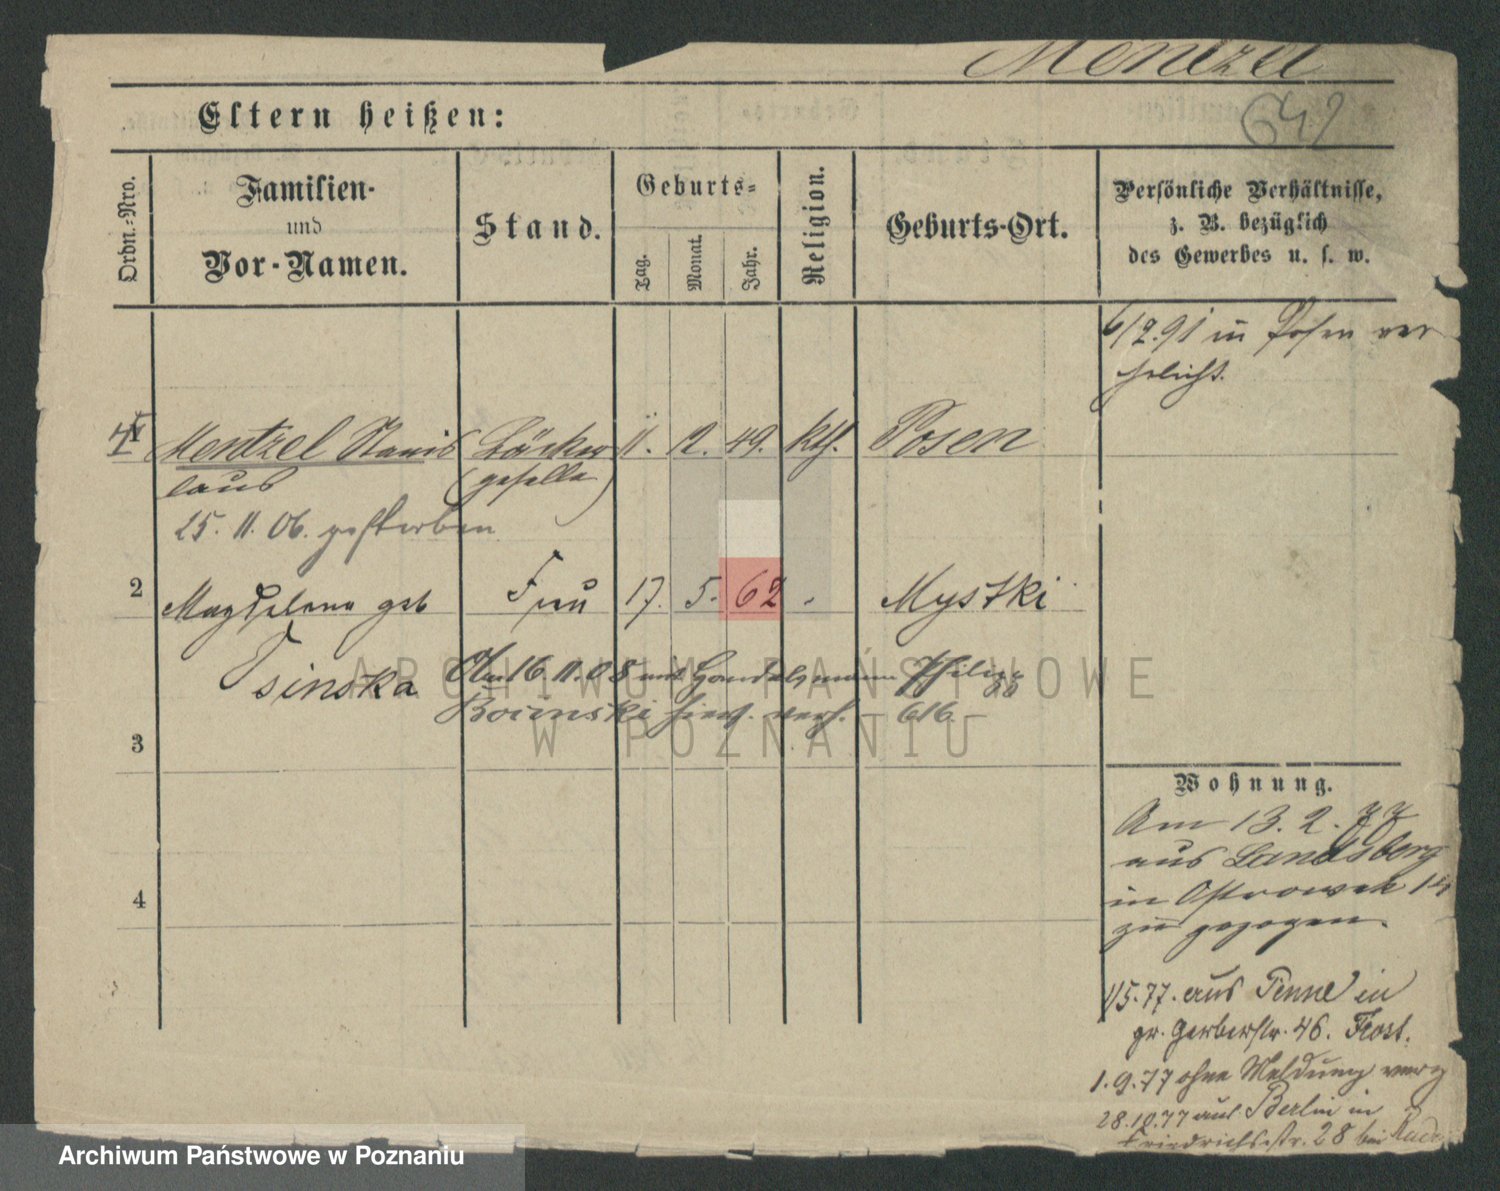 Mentzel
642
Eltern heißen:
Ordn.-Nro.
Familien-
und
Vor-Namen.
Stand.
Geburts-
Tag.
Monat.
Jahr.
Religion.
Geburts-Ort.
Persönliche Verhältnisse,
z. B. bezüglich
des Gewerbes u. s. w.
6/2.91 in Posen ver
ehelicht.
Mentzel Stanis Bäcker 11. 12. 49. kth. Posen
laus (geselle)
25. 11. 06. gestorben
2 Magdalena geb Frau 17. 5. 62 Mystki
sinska Am 16.11.08 mit Handelsmann Philipp
hier. verh. 616
ARCHIWUM PAŃSTWOWE
W POZNANIU
3
Wohnung.
Am 13. 2. 77
aus Landsberg
in Ostrowek 14
zu gezogen.
1/5.77. aus Pinne in
gr. Gerberstr. 46. Frost.
1.9.77 ohne Meldung verz
28.10.77 aus Berlin in
Friedrichsstr. 28 bei
4
Archiwum Państwowe w Poznaniu